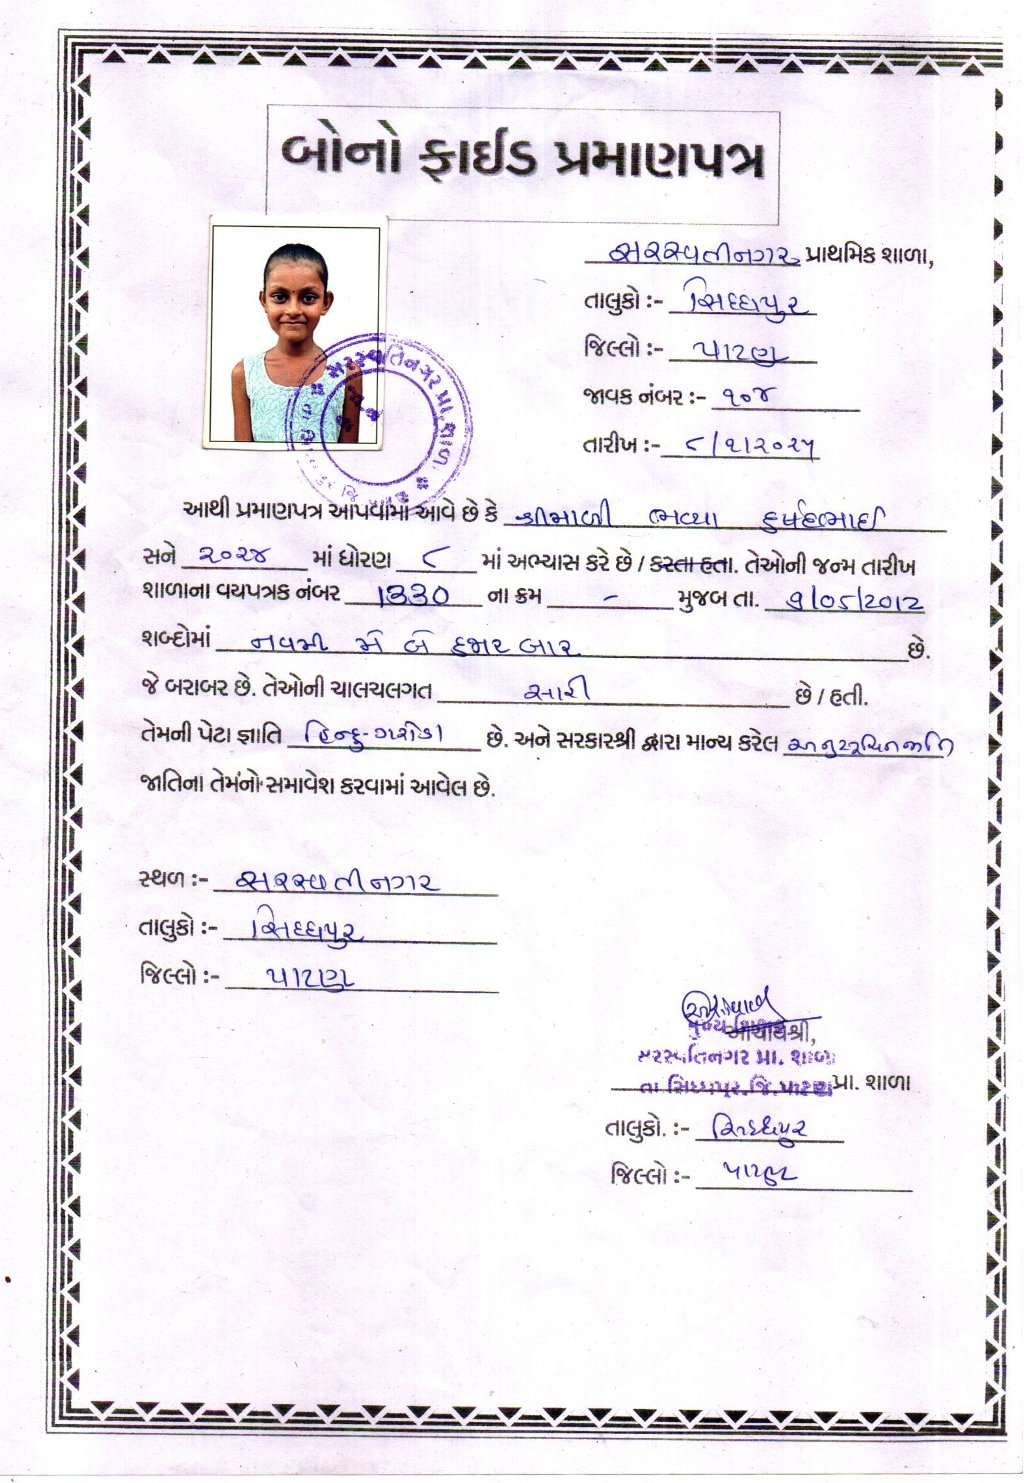 બોનો ફાઈડ પ્રમાણપત્ર
સરસ્વતીનગર પ્રાથમિક શાળા,
તાલુકો :- સિધ્ધપુર
જિલ્લો :- પાટણ
જાવક નંબર :- ૧૦૪
તારીખ :- ૮/૧/૨૦૨૫
સરસ્વતિનગર પ્રા. શાળા
આથી પ્રમાણપત્ર આપવામાં આવે છે કે શ્રીમાળી ભવ્યા
સને ૨૦૨૪ માં ધોરણ ૮ માં અભ્યાસ કરે છે / કરતા હતા. તેઓની જન્મ તારીખ
શાળાના વયપત્રક નંબર 1330 ના ક્રમ - મુજબ તા. 9/05/2012
શબ્દોમાં નવમી મે બે હજાર બાર છે.
જે બરાબર છે. તેઓની ચાલચલગત સારી છે / હતી.
તેમની પેટા જ્ઞાતિ હિન્દુ-ગરોડા છે. અને સરકારશ્રી દ્વારા માન્ય કરેલ અનુસૂચિતજાતિ
જાતિના તેમનો સમાવેશ કરવામાં આવેલ છે.
સ્થળ :- સરસ્વતીનગર
તાલુકો :- સિધ્ધપુર
જિલ્લો :- પાટણ
આચાર્યશ્રી,
સરસ્વતિનગર પ્રા. શાળા
તા સિધ્ધપુર.જિ.પાટણ પ્રા. શાળા
તાલુકો. :- સિધ્ધપુર
જિલ્લો :- પાટણ